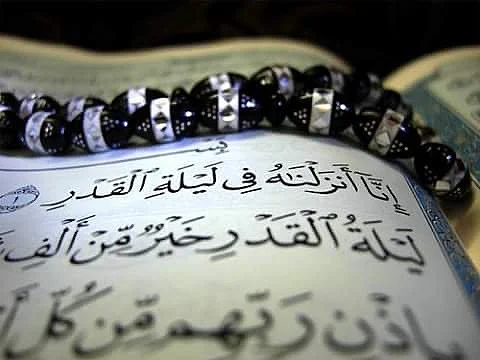 إِنَّآ أَنزَلْنَـٰهُ فِى لَيْلَةِ ٱلْقَدْرِ ١
لَيْلَةُ ٱلْقَدْرِ خَيْرٌ مِّنْ أَلْفِ
بِإِذْنِ رَبِّهِم مِّن كُلِّ